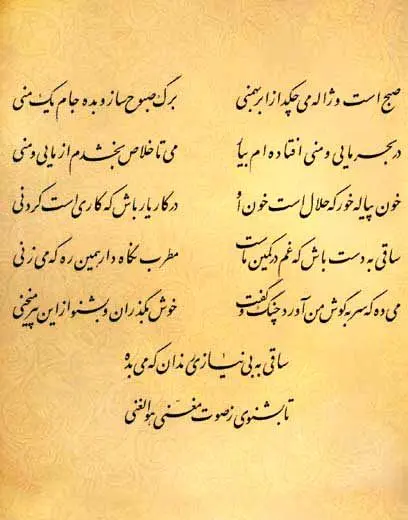 صبح است و ژاله می چکد از ابر بهمنی برگ صبوح ساز و بده جام یک منی
در بحر مایی و منی افتاده ام بیار می تا خلاص بخشدم از مایی و منی
خون پیاله خور که حلال است خون او در کار یار باش که کاری است کردنی
ساقی به دست باش که غم در کمین ماست مطرب نگاه دار همین ره که می زنی
می ده که سر به گوش من آورد چنگ و گفت خوش بگذران و بشنو از این پیر منحنی
ساقی به بی نیازی رندان که می بده
تا بشنوی ز صوت مغنّی هوالغنی